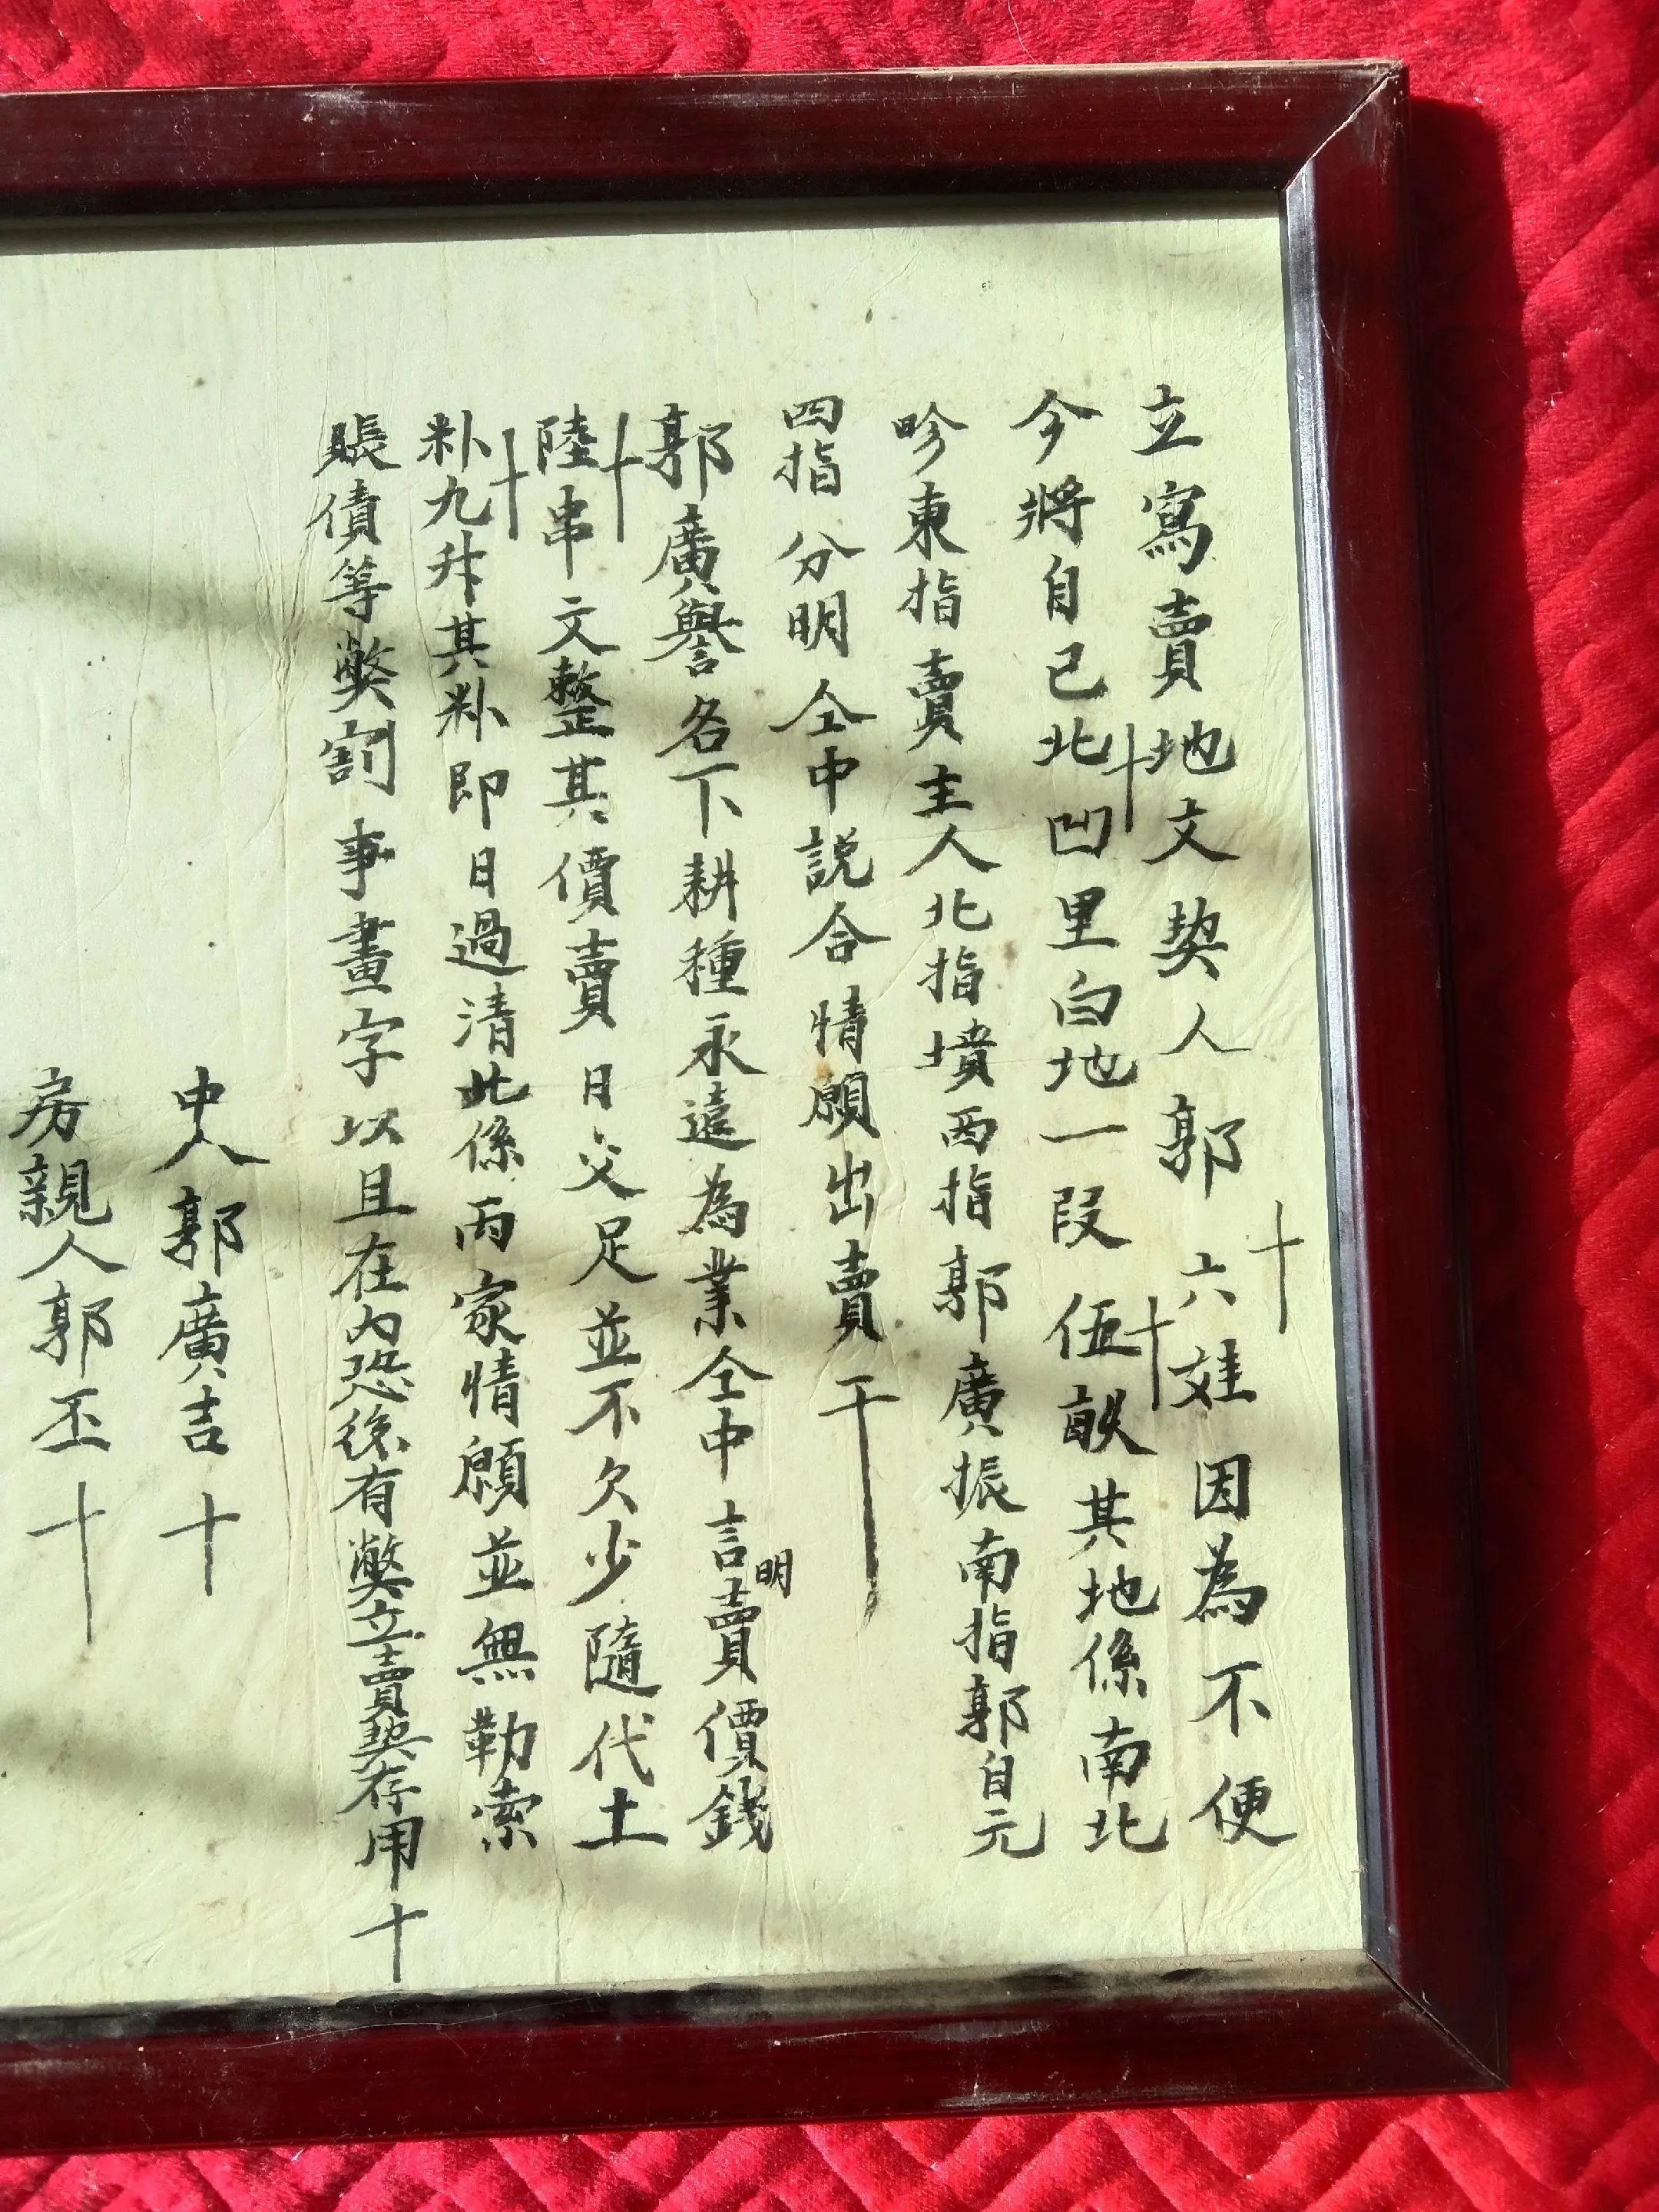 立寫賣地文契人郭六娃因為不便
今將自己北凹里白地一段伍畝其地係南北
畛東指賣主人北指墳西指郭廣振南指郭自元
四指分明仝中説合情願出賣于
郭廣譽名下耕種永遠為業仝中言明賣價錢
陸串文整其價賣日交足並不欠少隨代土
粆九升其粆即日過清此係両家情願並無勒索
賬債等獘割事畫字以且在內恐後有獘立賣契存用十
中人郭廣吉十
房親人郭丕十